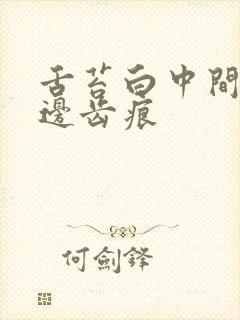 舌苔白中間
邊齿痕
何劍鋒